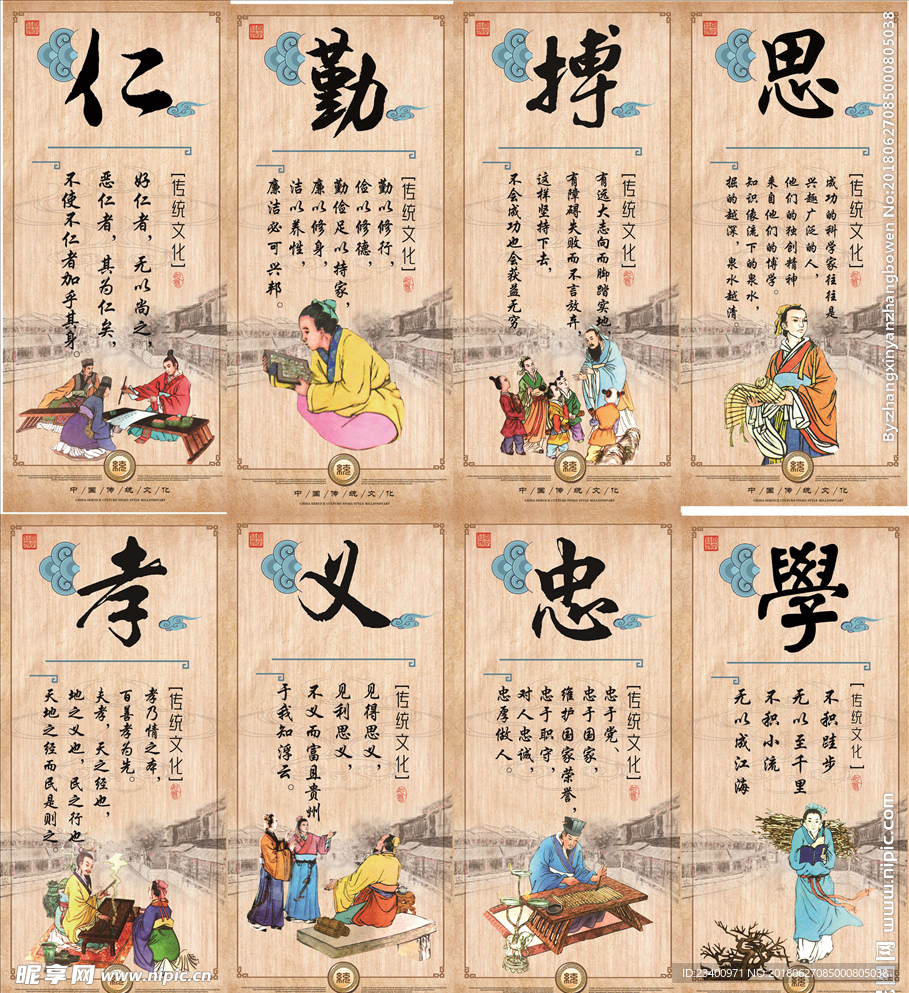 仁
[传统文化]
好仁者，无以尚之，
恶仁者，其为仁矣，
不使不仁者加乎其身。
中/国/传/统/文/化
勤
[传统文化]
勤以修行，
俭以修德，
勤俭足以持家，
廉以修身，
洁以养性，
廉洁必可兴邦。
中/国/传/统/文/化
搏
[传统文化]
有远大志向而脚踏实地，
有障碍失败而不言放弃，
这样坚持下去，
不会成功也会获益无穷。
中/国/传/统/文/化
思
[传统文化]
成功的科学家往往是
兴趣广泛的人，
他们的独创精神
来自他们的博学。
知识像流下的泉水，
掘的越深，泉水越清。
中/国/传/统/文/化
孝
[传统文化]
孝乃情之本，
百善孝为先。
夫孝，天之经也，
地之义也，民之行也
天地之经而民是则之。
义
[传统文化]
见得思义，
见利思义，
不义而富且贵州
于我知浮云。
忠
[传统文化]
忠于党、
忠于国家，
维护国家荣誉，
忠于职守，
对人忠诚，
忠厚做人。
學
[传统文化]
不积跬步
无以至千里
不积小流
无以成江海
By:zhangxinyanzhangbowen No:20180627085000805038
www.nipic.com
昵享网 www.nipic.cn
ID:23400971 NO:20180627085000805038